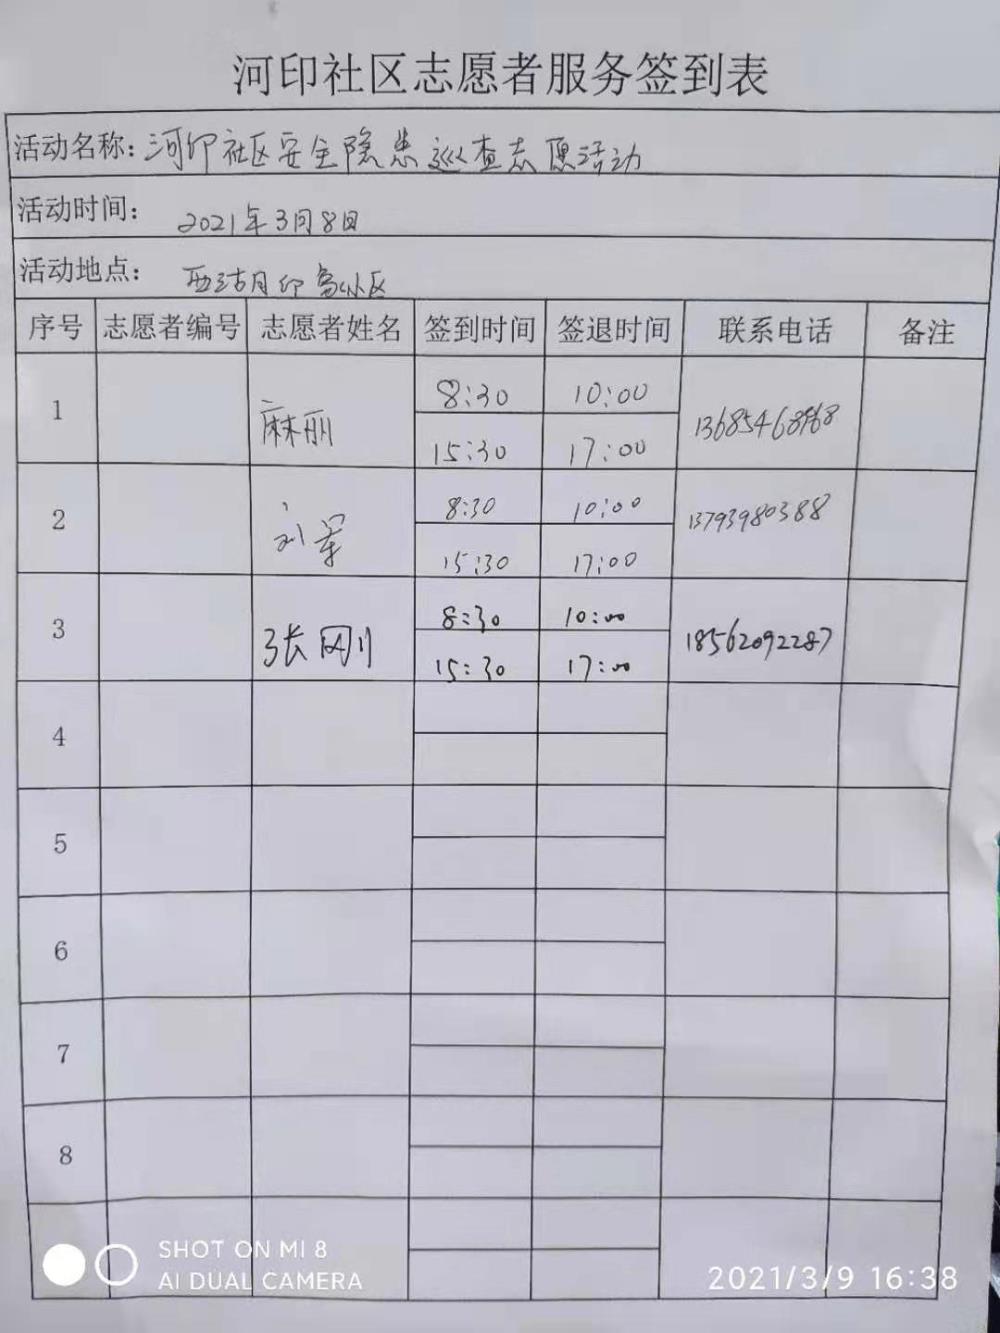 河印社区志愿者服务签到表
活动名称：河印社区安全隐患巡查志愿活动
活动时间： 2021年3月8日
活动地点： 西沽月印象小区
序号 志愿者编号 志愿者姓名 签到时间 签退时间 联系电话 备注
1 麻丽 8:30 10:00 13685468968
15:30 17:00
2 刘军 8:30 10:00 13793980388
15:30 17:00
3 张刚 8:30 10:00 18562092287
15:30 17:00
4
5
6
7
8
SHOT ON MI 8
AI DUAL CAMERA
2021/3/9 16:38